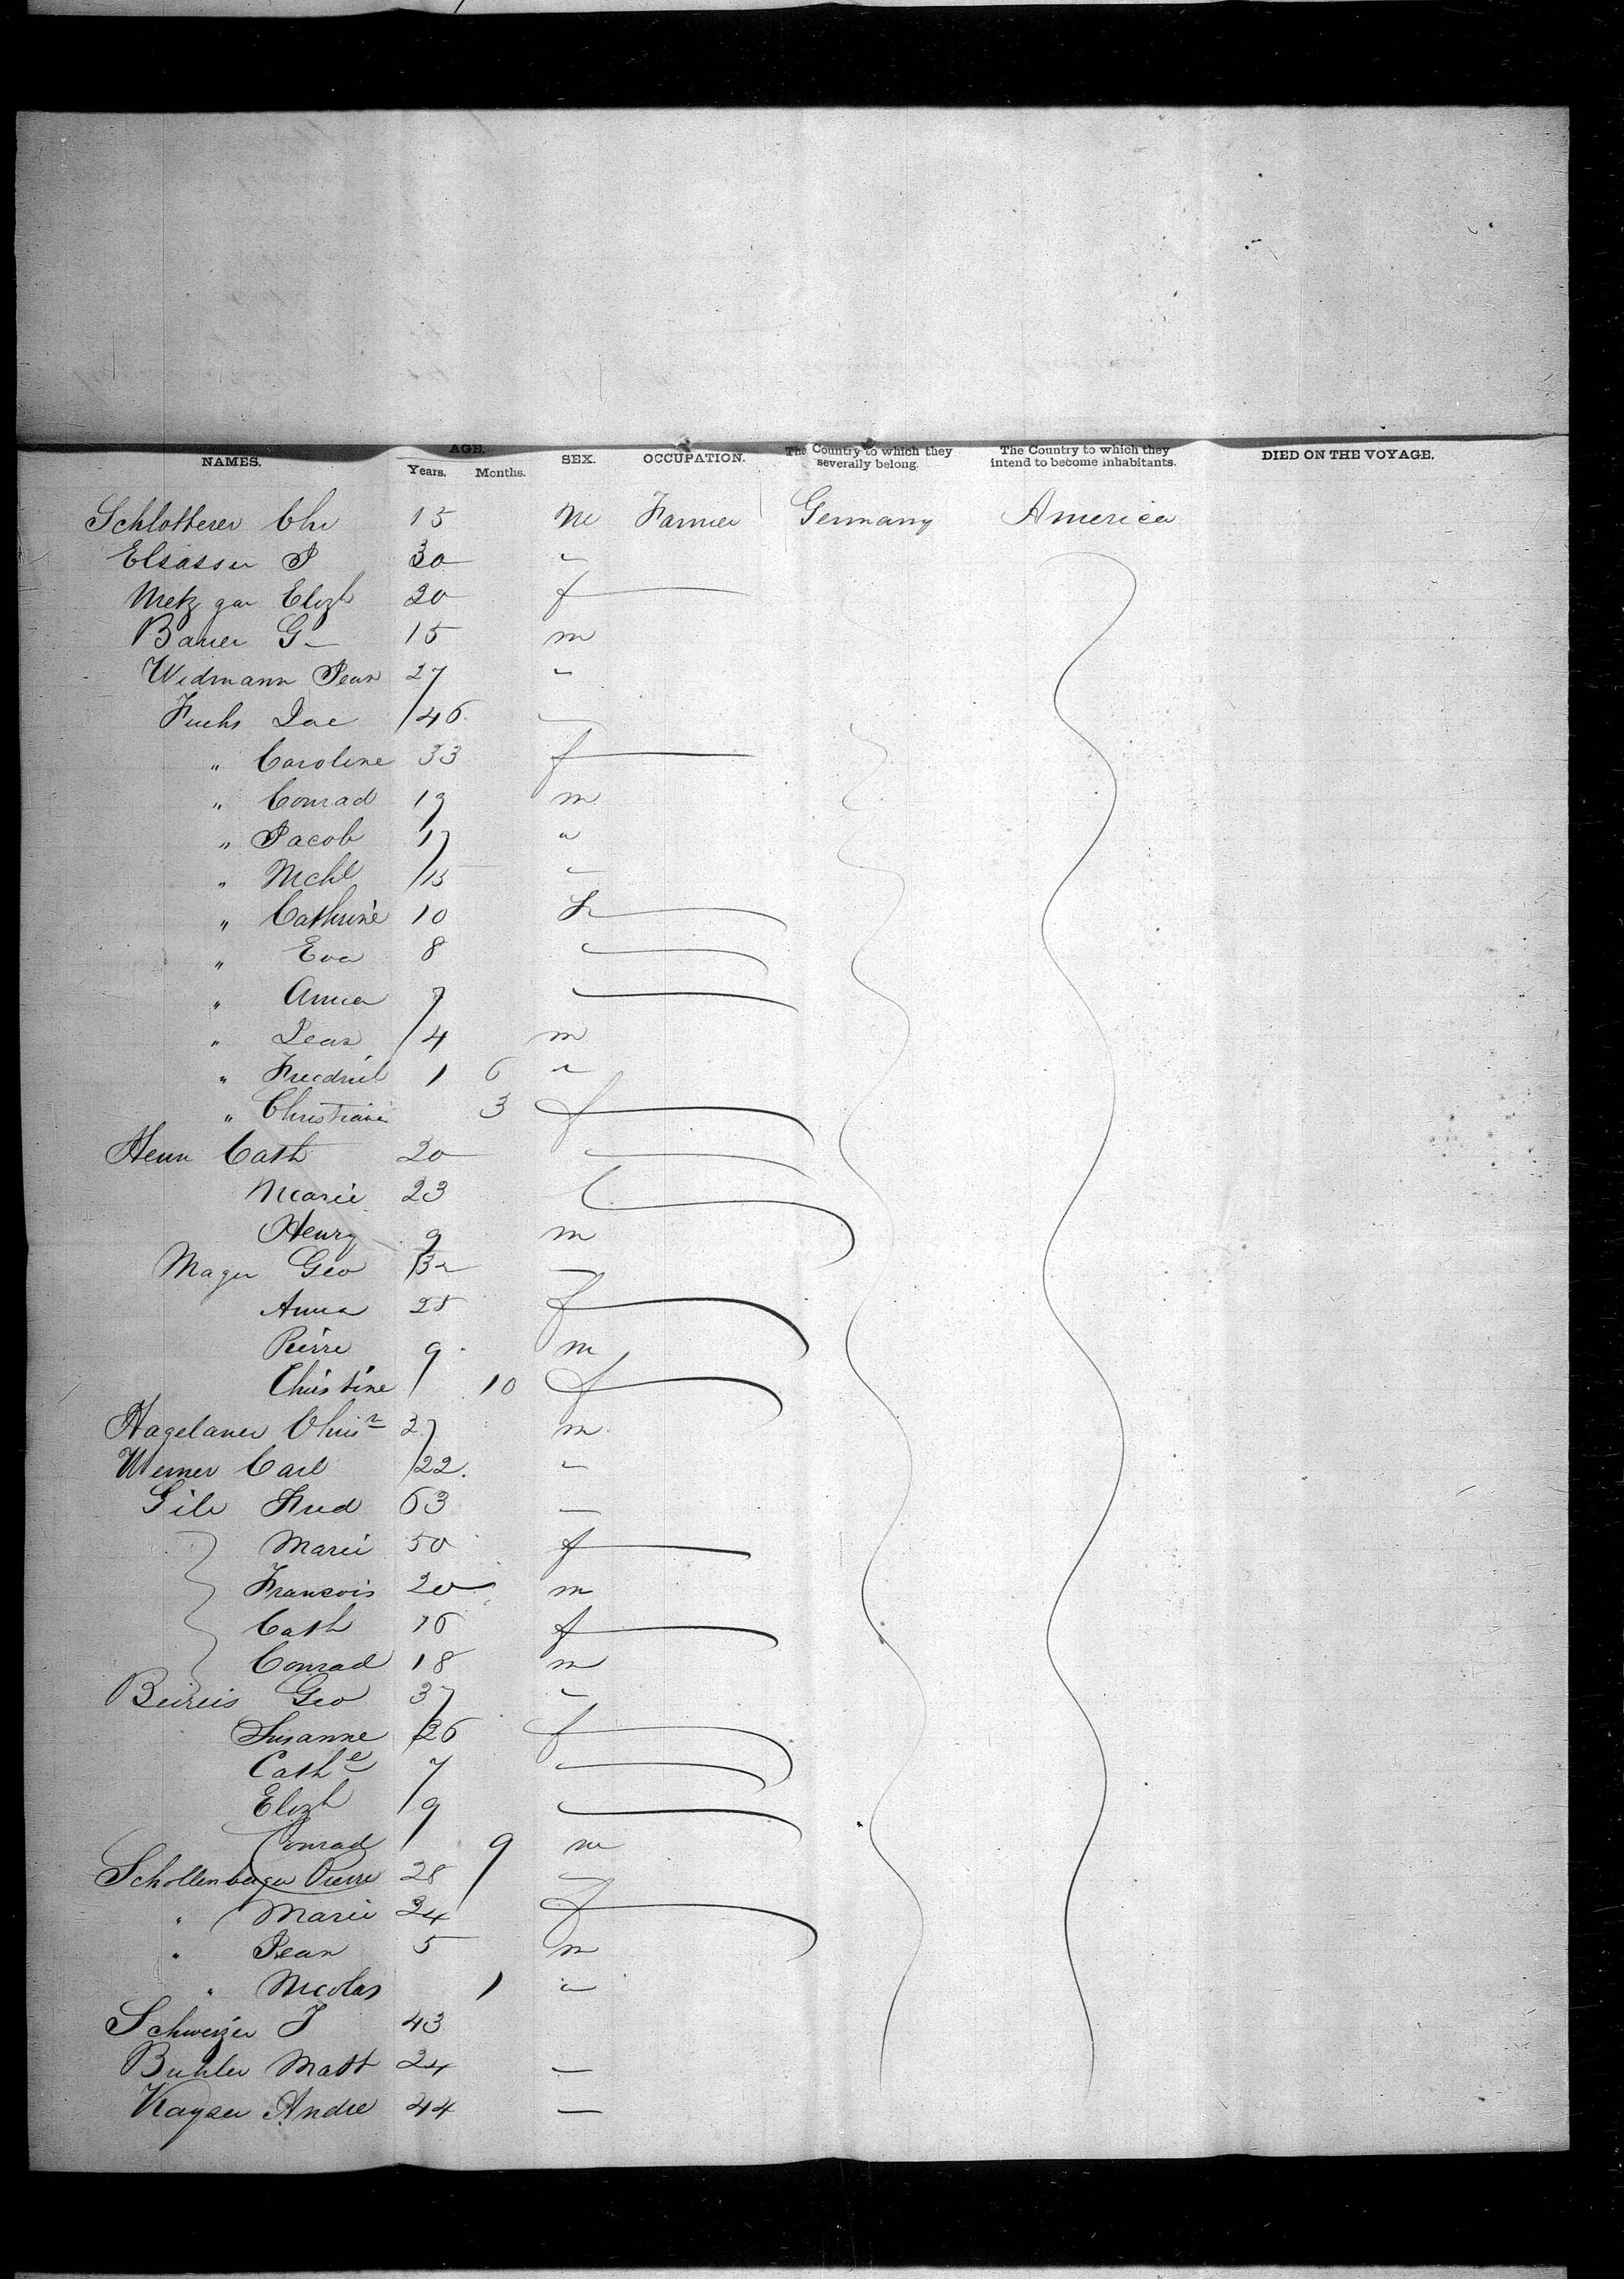 NAMES. AGE. Years. Months. SEX. OCCUPATION. The Country to which they severally belong. The Country to which they intend to become inhabitants. DIED ON THE VOYAGE.
Schlotterer Chr 15 m Farmer Germany America
Elsasser P 30 "
Metzgar Elizh 20 f
Bauer G 15 m
Widmann Jean 27 "
Fuchs Jac 46
" Caroline 33 f
" Conrad 19 m
" Jacob 17 "
" Mchl 15 "
" Cathrine 10 f
" Eva 8
" Anna 7
" Jean 4 m
" Fredrick 1 6 "
" Christiane 3 f
Henn Cath 20
Marie 23
Henry 9 m
Mager Geo 32
Anna 25 f
Pierre 9 m
Christine 10 f
Hagelauer Chr 27 m
Werner Carl 22 "
Fred 63
Marie 50 f
Francois 20 m
Cath 16 f
Conrad 18 m
Beireis Geo 37 "
Susanne 36 f
Cathe 7
Elizh 9
Conrad 9 m
Schollenberger Pierre 28
" Marie 24 f
" Jean 5 m
" Nicolas 1 "
Schweizer J 43
Buhler Matt 24
Kayser Andre 44